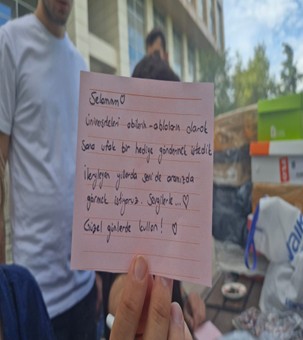 Selamm☺
Üniversiteli abilerin-ablaların olarak
sana ufak bir hediye göndermek istedik
İlerleyen yıllarda seni de aramızda
görmek istiyoruz. Sevgilerle...♡
Güzel günlerde kullan! ♡